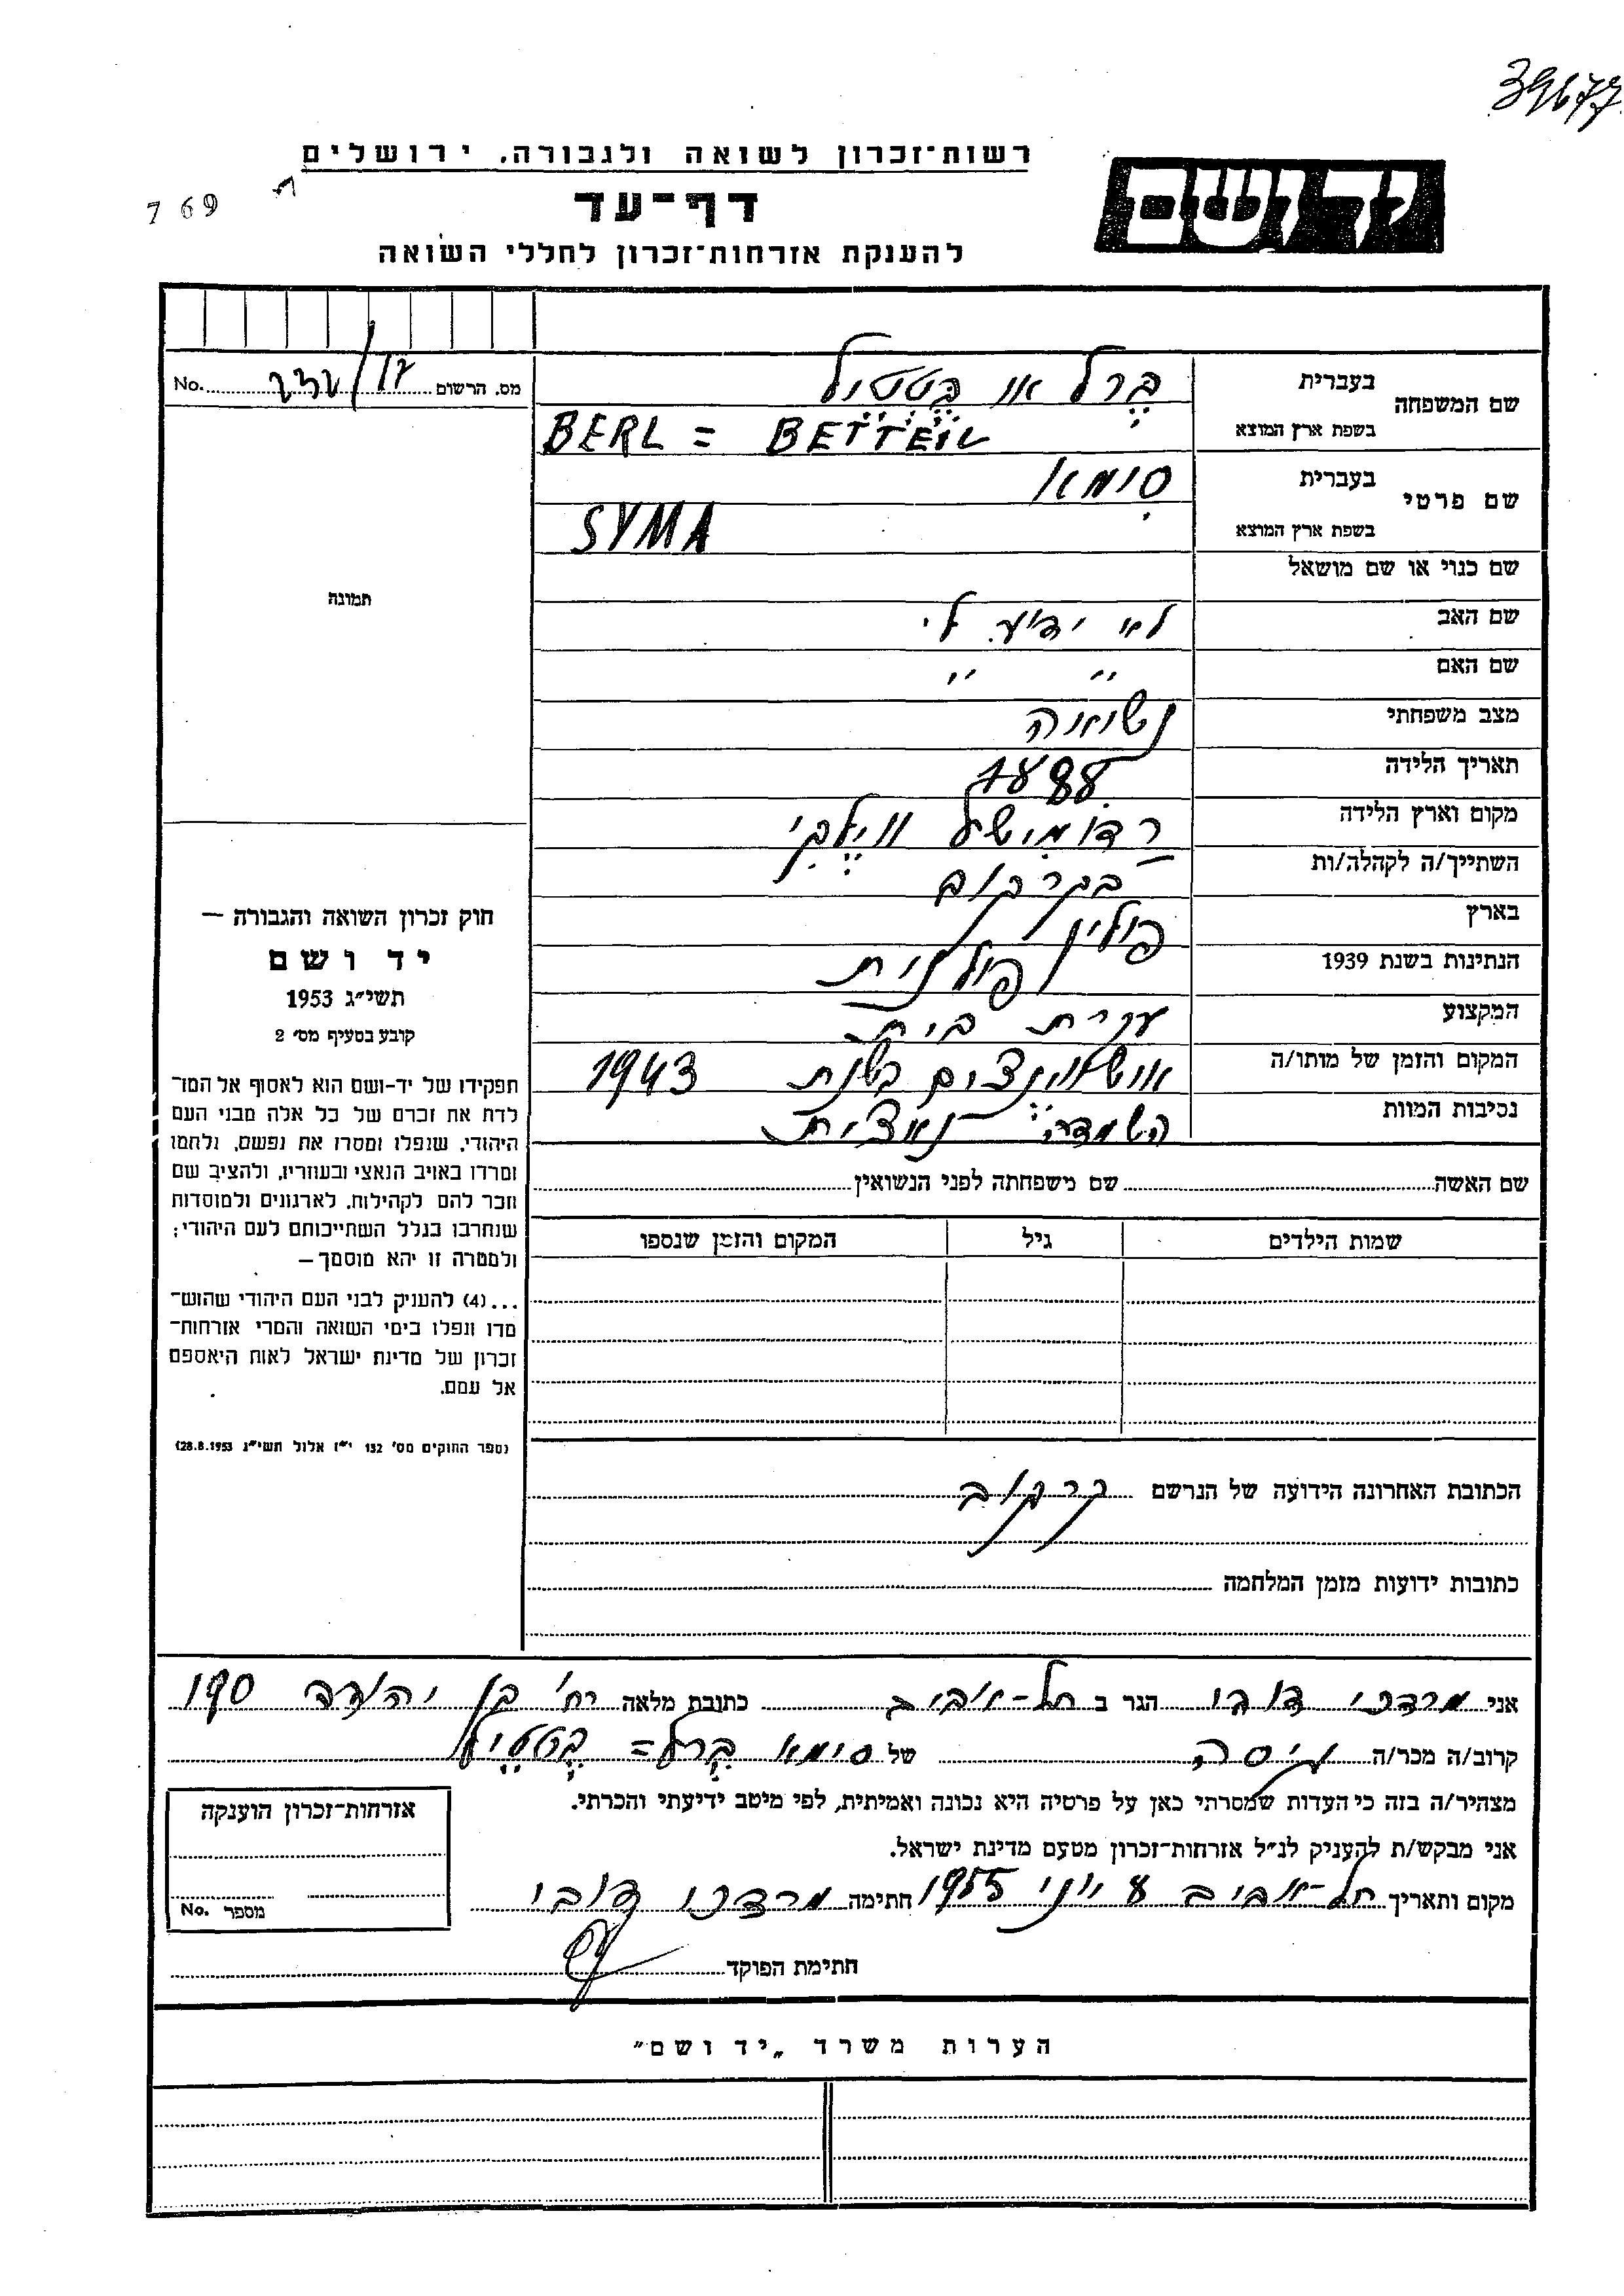 39677
רשות־זכרון לשואה ולגבורה, ירושלים
יד ושם
7 69
דף־עד
להענקת אזרחות־זכרון לחללי השואה
שם המשפחה
בעברית ברל או בטטיל
בשפת ארץ המוצא BERL = BETTEIL
מס. הרשום No.
שם פרטי
בעברית סימא
בשפת ארץ המוצא SYMA
שם כנוי או שם מושאל
תמונה
שם האב לא ידוע לי
שם האם " "
מצב משפחתי נשואה
תאריך הלידה 1888
מקום וארץ הלידה רדומישל ווילקי
השתייך/ה לקהלה/ות בקרקוב
בארץ פולין
הנתינות בשנת 1939 פולנית
המקצוע עקרת בית
המקום והזמן של מותו/ה אושווינצים בשנת 1943
נסיבות המוות השמדה נאצית
חוק זכרון השואה והגבורה —
יד ושם
תשי״ג 1953
קובע בסעיף מס׳ 2
תפקידו של יד-ושם הוא לאסוף אל המו־
לדת את זכרם של כל אלה מבני העם
היהודי, שנפלו ומסרו את נפשם, נלחמו
ומרדו באויב הנאצי ובעוזריו, ולהציב שם
וזכר להם לקהילות, לארגונים ולמוסדות
שנחרבו בגלל השתייכותם לעם היהודי;
ולמטרה זו יהא מוסמך —
...(4) להעניק לבני העם היהודי שהוש־
מדו ונפלו בימי השואה והמרי אזרחות־
זכרון של מדינת ישראל לאות היאספם
אל עמם.
(ספר החוקים מס׳ 132 י״ז אלול תשי״ג 28.8.1953)
שם האשה שם משפחתה לפני הנשואין
שמות הילדים גיל המקום והזמן שנספו
הכתובת האחרונה הידועה של הנרשם קרקוב
כתובות ידועות מזמן המלחמה
אני מרדכי דובי הגר ב תל-אביב כתובת מלאה רח׳ בן יהודה 190
קרוב/ה מכר/ה גיסה של סימא ברל = בטטיל
מצהיר/ה בזה כי העדות שמסרתי כאן על פרטיה היא נכונה ואמיתית, לפי מיטב ידיעתי והכרתי.
אני מבקש/ת להעניק לנ״ל אזרחות־זכרון מטעם מדינת ישראל.
מקום ותאריך תל-אביב 8 יוני 1955 חתימה מרדכי דובי
חתימת הפוקד
אזרחות־זכרון הוענקה
מספר No.
הערות משרד „יד ושם״